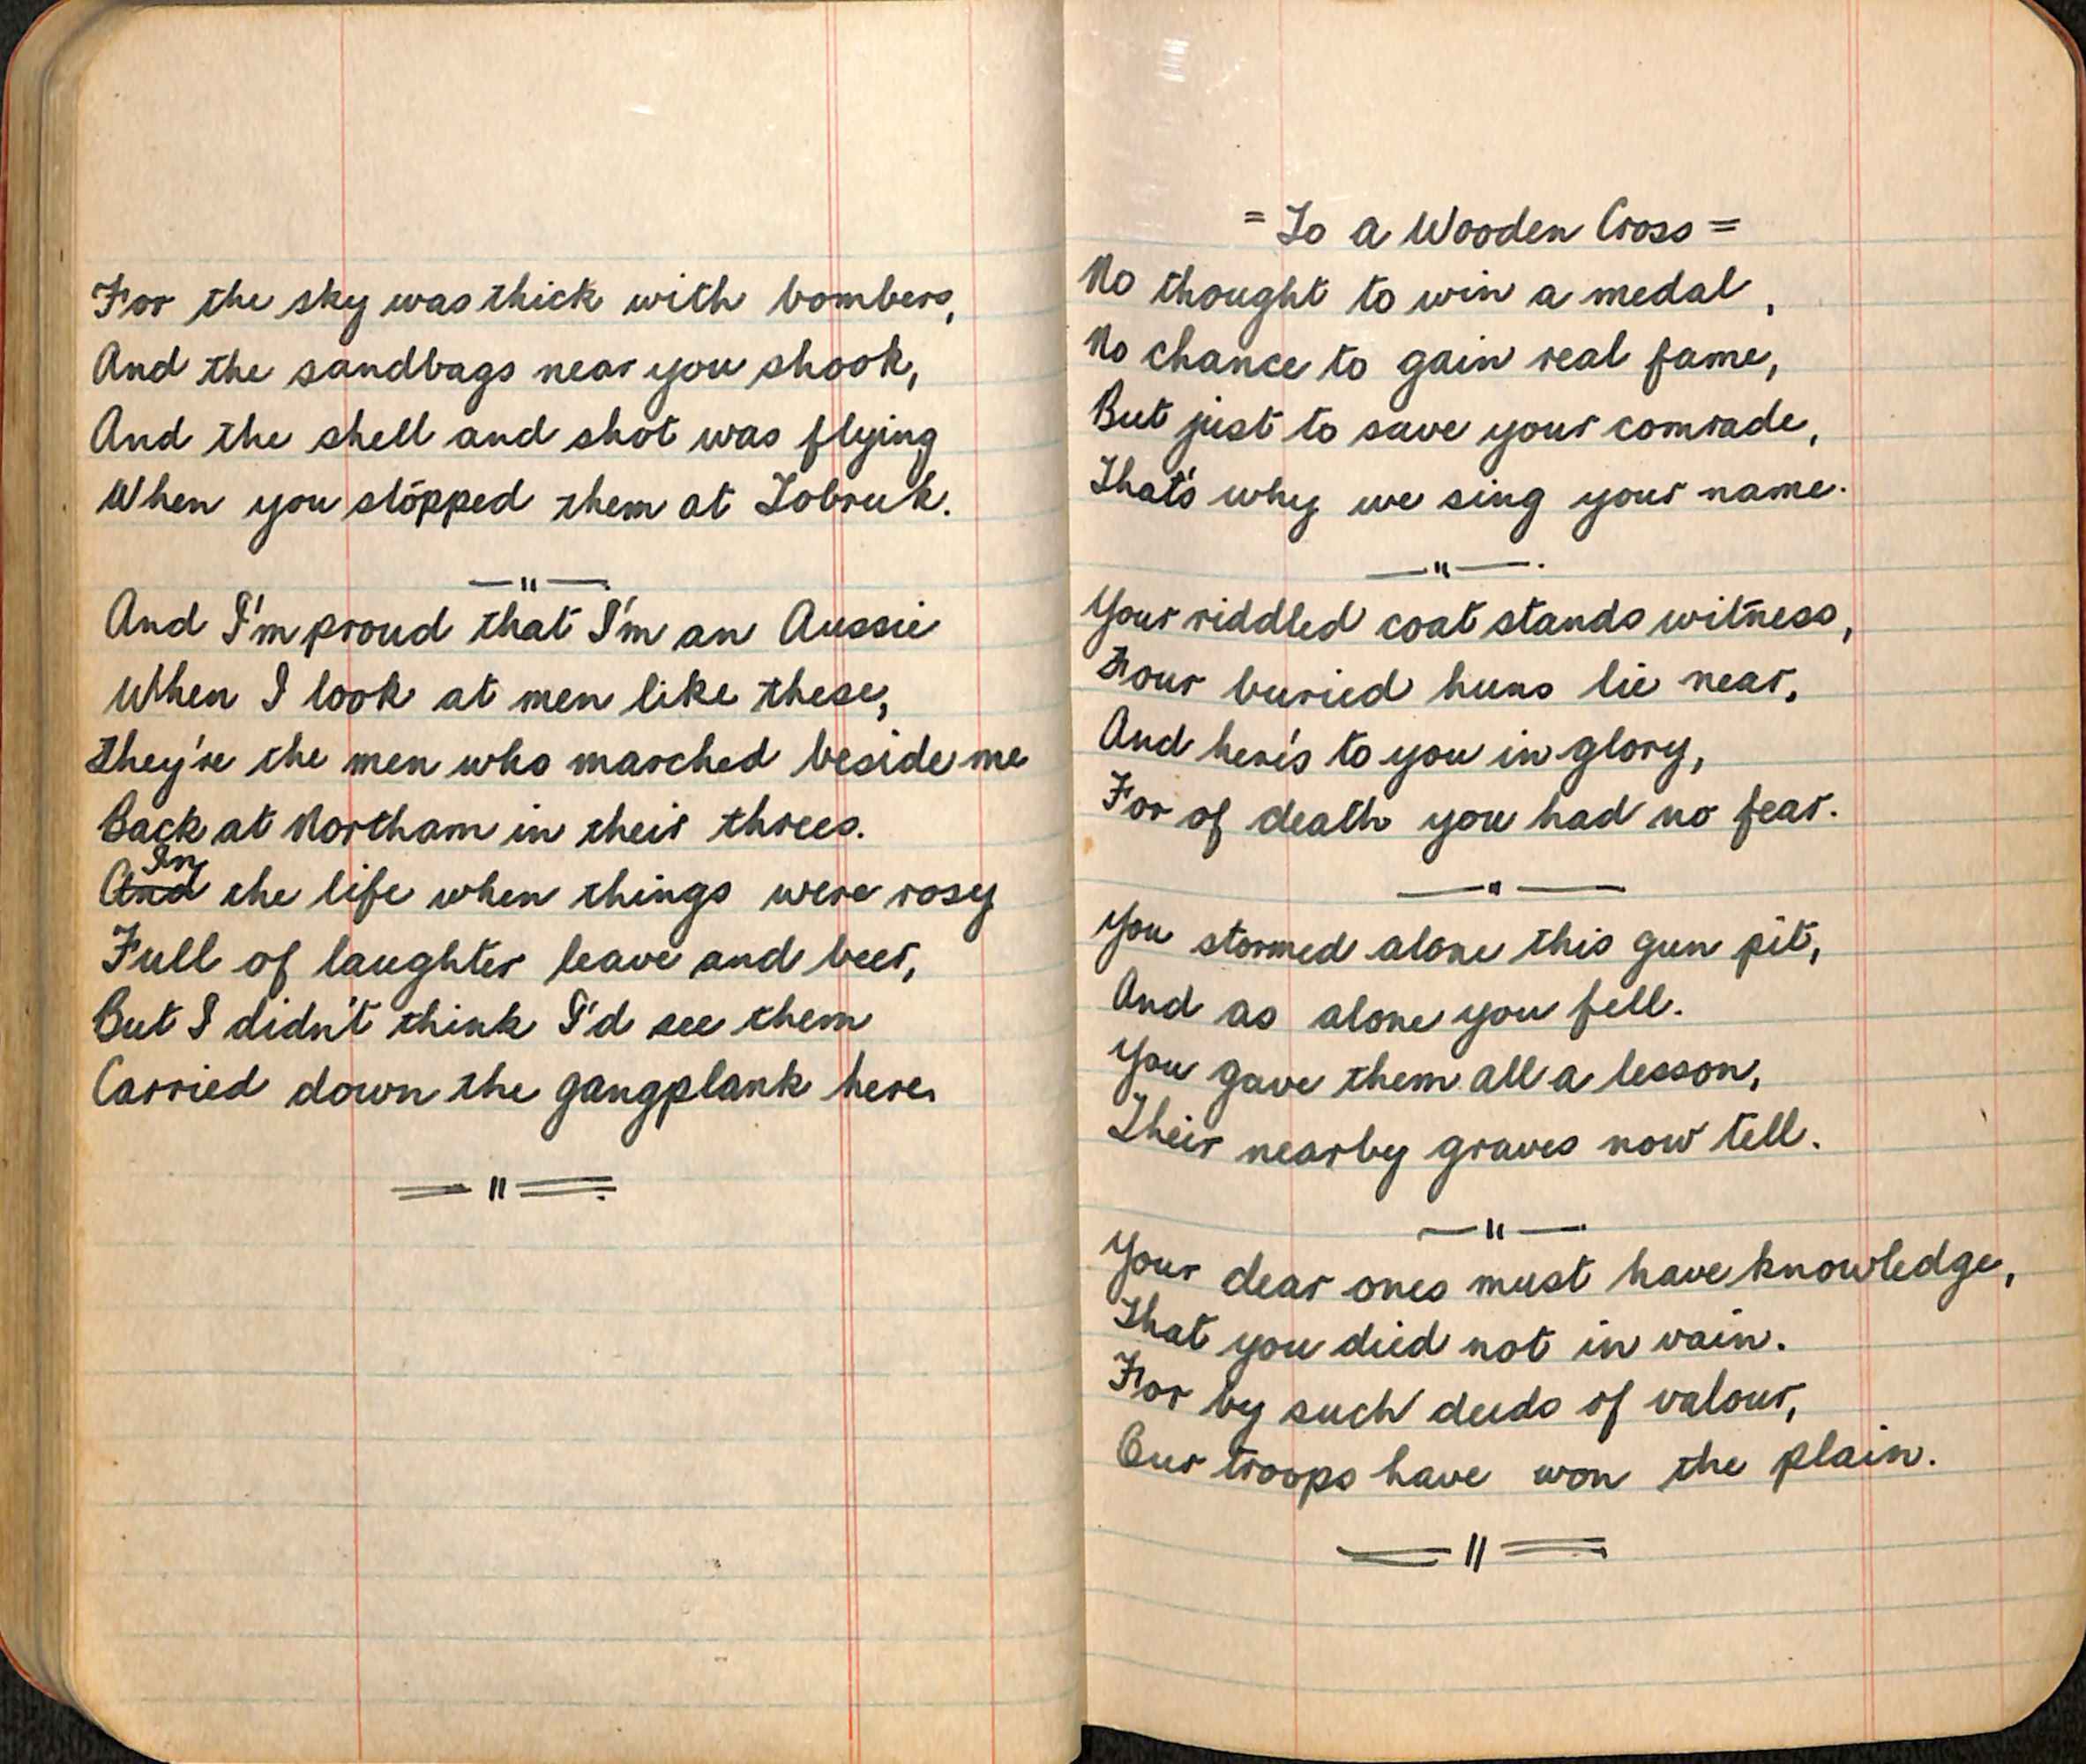 For the sky was thick with bombers,
And the sandbags near you shook,
And the shell and shot was flying
When you stopped them at Tobruk.
— " —
And I'm proud that I'm an Aussie
When I look at men like these,
they're the men who marched beside me
Back at Northam in their threes.
In
And the life when things were rosy
Full of laughter leave and beer,
But I didn't think I'd see them
Carried down the gangplank here.
= " =
= To a Wooden Cross =
No thought to win a medal,
No chance to gain real fame,
But just to save your comrade,
That's why we sing your name.
— " —
Your riddled coat stands witness,
Four buried huns lie near,
And here's to you in glory,
For of death you had no fear.
— " —
You stormed alone this gun pit,
And as alone you fell.
You gave them all a lesson,
Their nearby graves now tell.
— " —
Your dear ones must have knowledge,
That you died not in vain.
For by such deeds of valour,
Our troops have won the plain.
= " =